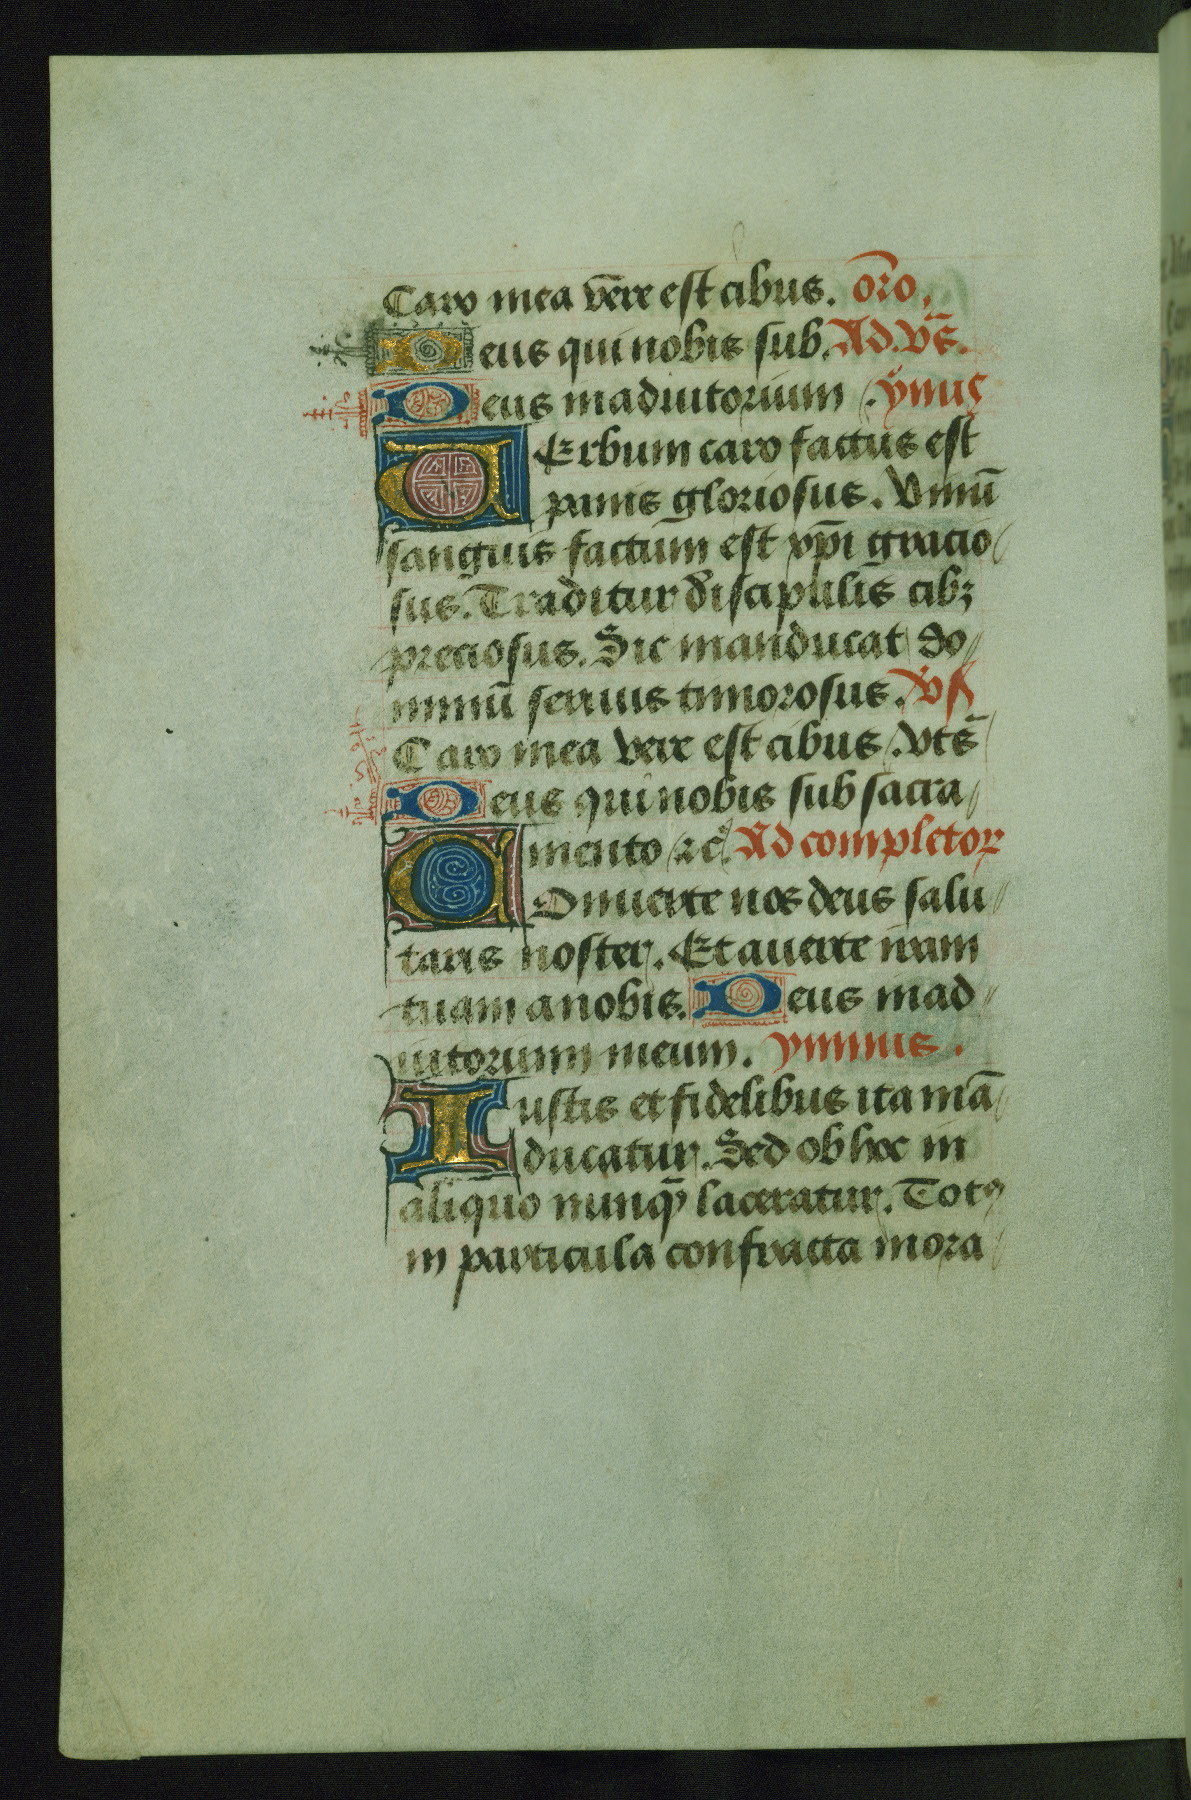 Caro mea vere est cibus. oro.
Deus qui nobis sub. Ad. vs̄.
Deus in adiutorium. ymus
VErbum caro factus est
panis gloriosus. Vinū
sanguis factum est xp̄i gracio
sus. Traditur discipulis cibꝫ
preciosus. Sic manducat do
minū seruus timorosus. vs
Caro mea vere est cibus. vts̄
Deus qui nobis sub sacra
mento ⁊c̄. Ad completoꝝ
COnuerte nos deus salu
taris noster. Et auerte iram
tuam a nobis. Deus in ad
iutorium meum. ymnus.
Iustis et fidelibus ita mā
ducatur. Sed ob hoc in
aliquo nunqꝫ laceratur. Totꝰ
in particula confracta mora